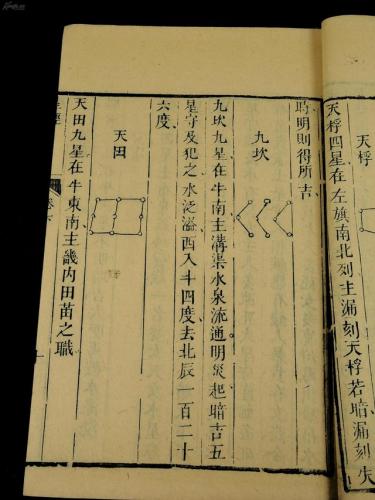 天桴
天桴四星在左旗南北列主漏刻天桴若暗漏刻失
時明則得所吉
九坎
九坎九星在牛南主溝渠水泉流通明災起暗吉五
星守及犯之水泛溢西入斗四度去北辰一百二十
六度
天田
天田九星在牛東南主畿内田苗之職
星經
卷下